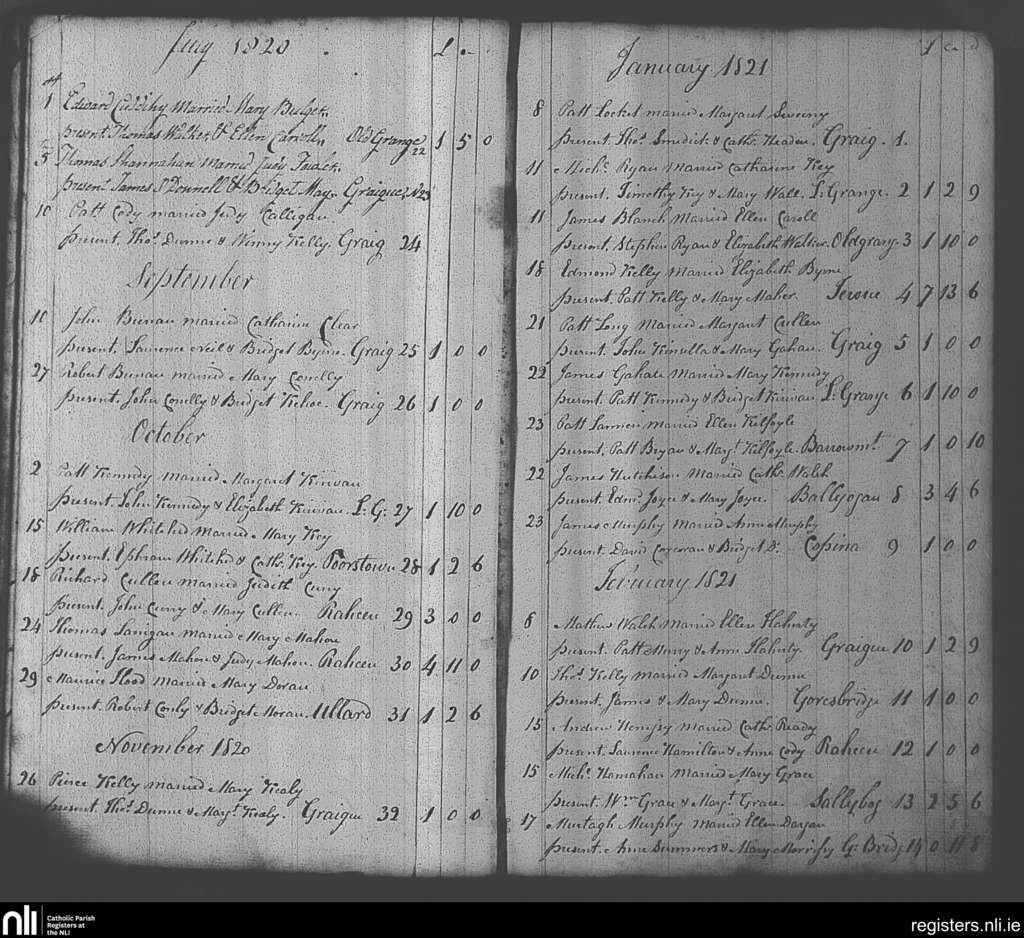 July 1820 £
1 Edward Cuddihy Married Mary Bulger
present Thomas Walker & Ellen Old Grange 22 1 5 0
5 Thomas Shannahan Married Judy
present James O Donnell & Bridget May Graigue 23
10 Patt Cody married Judy Calligan
present. Thos. Dunne & Winny Kelly. Graig 24
September
10 John married Catharine Clear
present. Laurence Neil & Bridget Byrne. Graig 25 1 0 0
27 Robert married Mary Conelly
present. John Conelly & Bridget Kehoe. Graig 26 1 0 0
October
2 Patt Kennedy married Margaret Kirwan
present. John Kennedy & Elizabeth Kirwan. L. G. 27 1 10 0
15 William Whitehed Married Mary Key
present. Ephram Whitehed & Cath. Key. Poorstown 28 1 2 6
18 Richard Cullen married Judith Curry
present. John Curry & Mary Cullen. Raheen 29 3 0 0
24 Thomas Lanigan married Mary Mahon
present. James Mahon & Judy Mahon. Raheen 30 4 11 0
29 Maurice Flood married Mary Doran
present. Robert Conly & Bridget Moran. Ullard 31 1 2 6
November 1820
26 Pierce Kelly married Mary Kealy
present. Thos. Dunne & Margt. Kealy. Graigue 32 1 0 0
January 1821
8 Patt Locket married Margaret Sweeny
present. Thos. & Cath. Headen. Graig 1.
11 Michl. Ryan married Catharine Key
present. Timothy Key & Mary Wall. L. Grange. 2 1 2 9
11 James Blanch Married Ellen Caroll
present. Stephen Ryan & Elizabeth Walker. Oldgrang. 3 1 10 0
18 Edmond Kelly married Elizabeth Byrne
present. Patt Kelly & Mary Maher. 4 7 13 6
21 Patt Long married Margaret Cullen
present. John Kinsella & Mary Gahan. Graig 5 1 0 0
22 James Gahan Married Mary Kennedy
present. Patt Kennedy & Bridget Kirwan L. Grange 6 1 10 0
23 Patt married Ellen Kilfoyle
present. Patt Bryan & Margt. Kilfoyle. Barrowmt. 7 1 0 10
22 James Hutcheson Married Cath. Walsh
present. Edmd. Joyce & Mary Joyce. Ballyogan 8 3 4 6
23 James Murphy married Anne Murphy
present David Corcoran & Bridget Do. Copina 9 1 0 0
February 1821
8 Mathew Walsh Married Ellen Flaherty
present. Patt & Anne Flaherty. Graigue 10 1 2 9
10 Thos. Kelly married Margaret Dunne
present. James & Mary Dunne. Goresbridge 11 1 0 0
15 Andrew Hempsy married Cath. Ready
present. Laurence Hamilton & Anne Cody Raheen 12 1 0 0
15 Michl. Hanrahan married Mary Grace
present. Wm. Grace & Margt. Grace. Sallybog 13 2 5 6
17 Murtagh Murphy married Ellen
present. Anne Summers & Mary Morrissy G. Bridg 14 0 11 8
nli Catholic Parish
Registers at
the NLI
registers.nli.ie